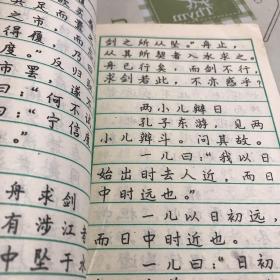 足而
之市，而
得履，乃
度。”反归
市罢，遂
曰：“何不试
曰：“宁信度
。”
舟求剑
有涉江
中坠于水
剑之所从坠。”舟止，
从其所契者入水求之。
舟已行矣，而剑不行，
求剑若此，不亦惑乎？
两小儿辩日
孔子东游，见两
小儿辩斗。问其故。
一儿曰：“我以日
始出时去人近，而日
中时远也。”
一儿以日初远，
而日中时近也。
一儿曰：“日初